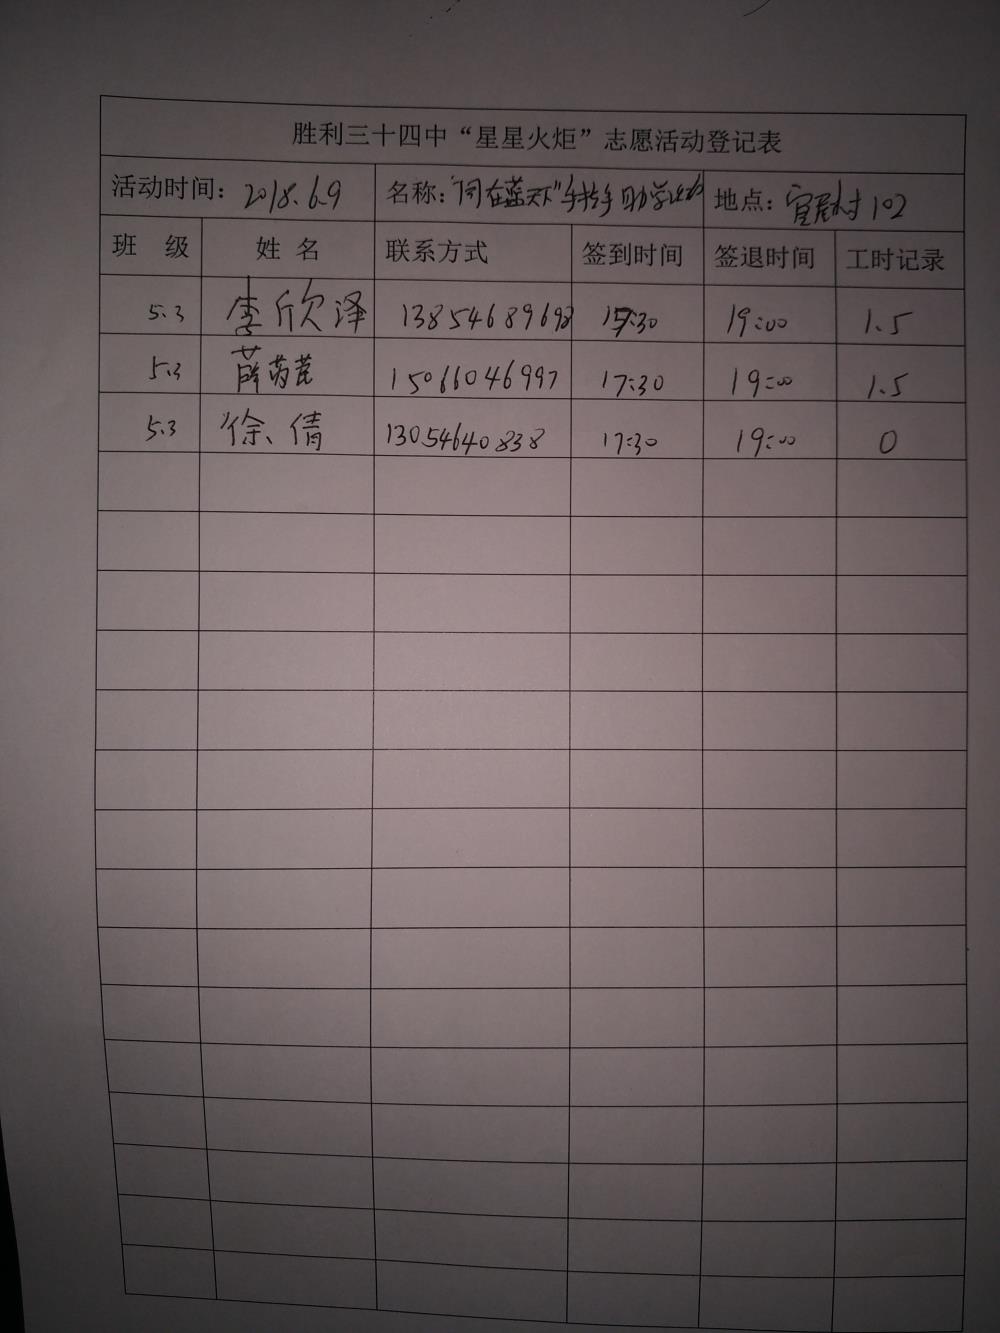 胜利三十四中“星星火炬”志愿活动登记表
活动时间：2018.6.9 名称：“同在蓝天下”手拉手助学活动 地点：宜居村102
班 级 姓 名 联系方式 签到时间 签退时间 工时记录
5.3 李欣泽 13854689698 17:30 19:00 1.5
5.3 薛 15066046997 17:30 19:00 1.5
5.3 徐倩 13054640838 17:30 19:00 0